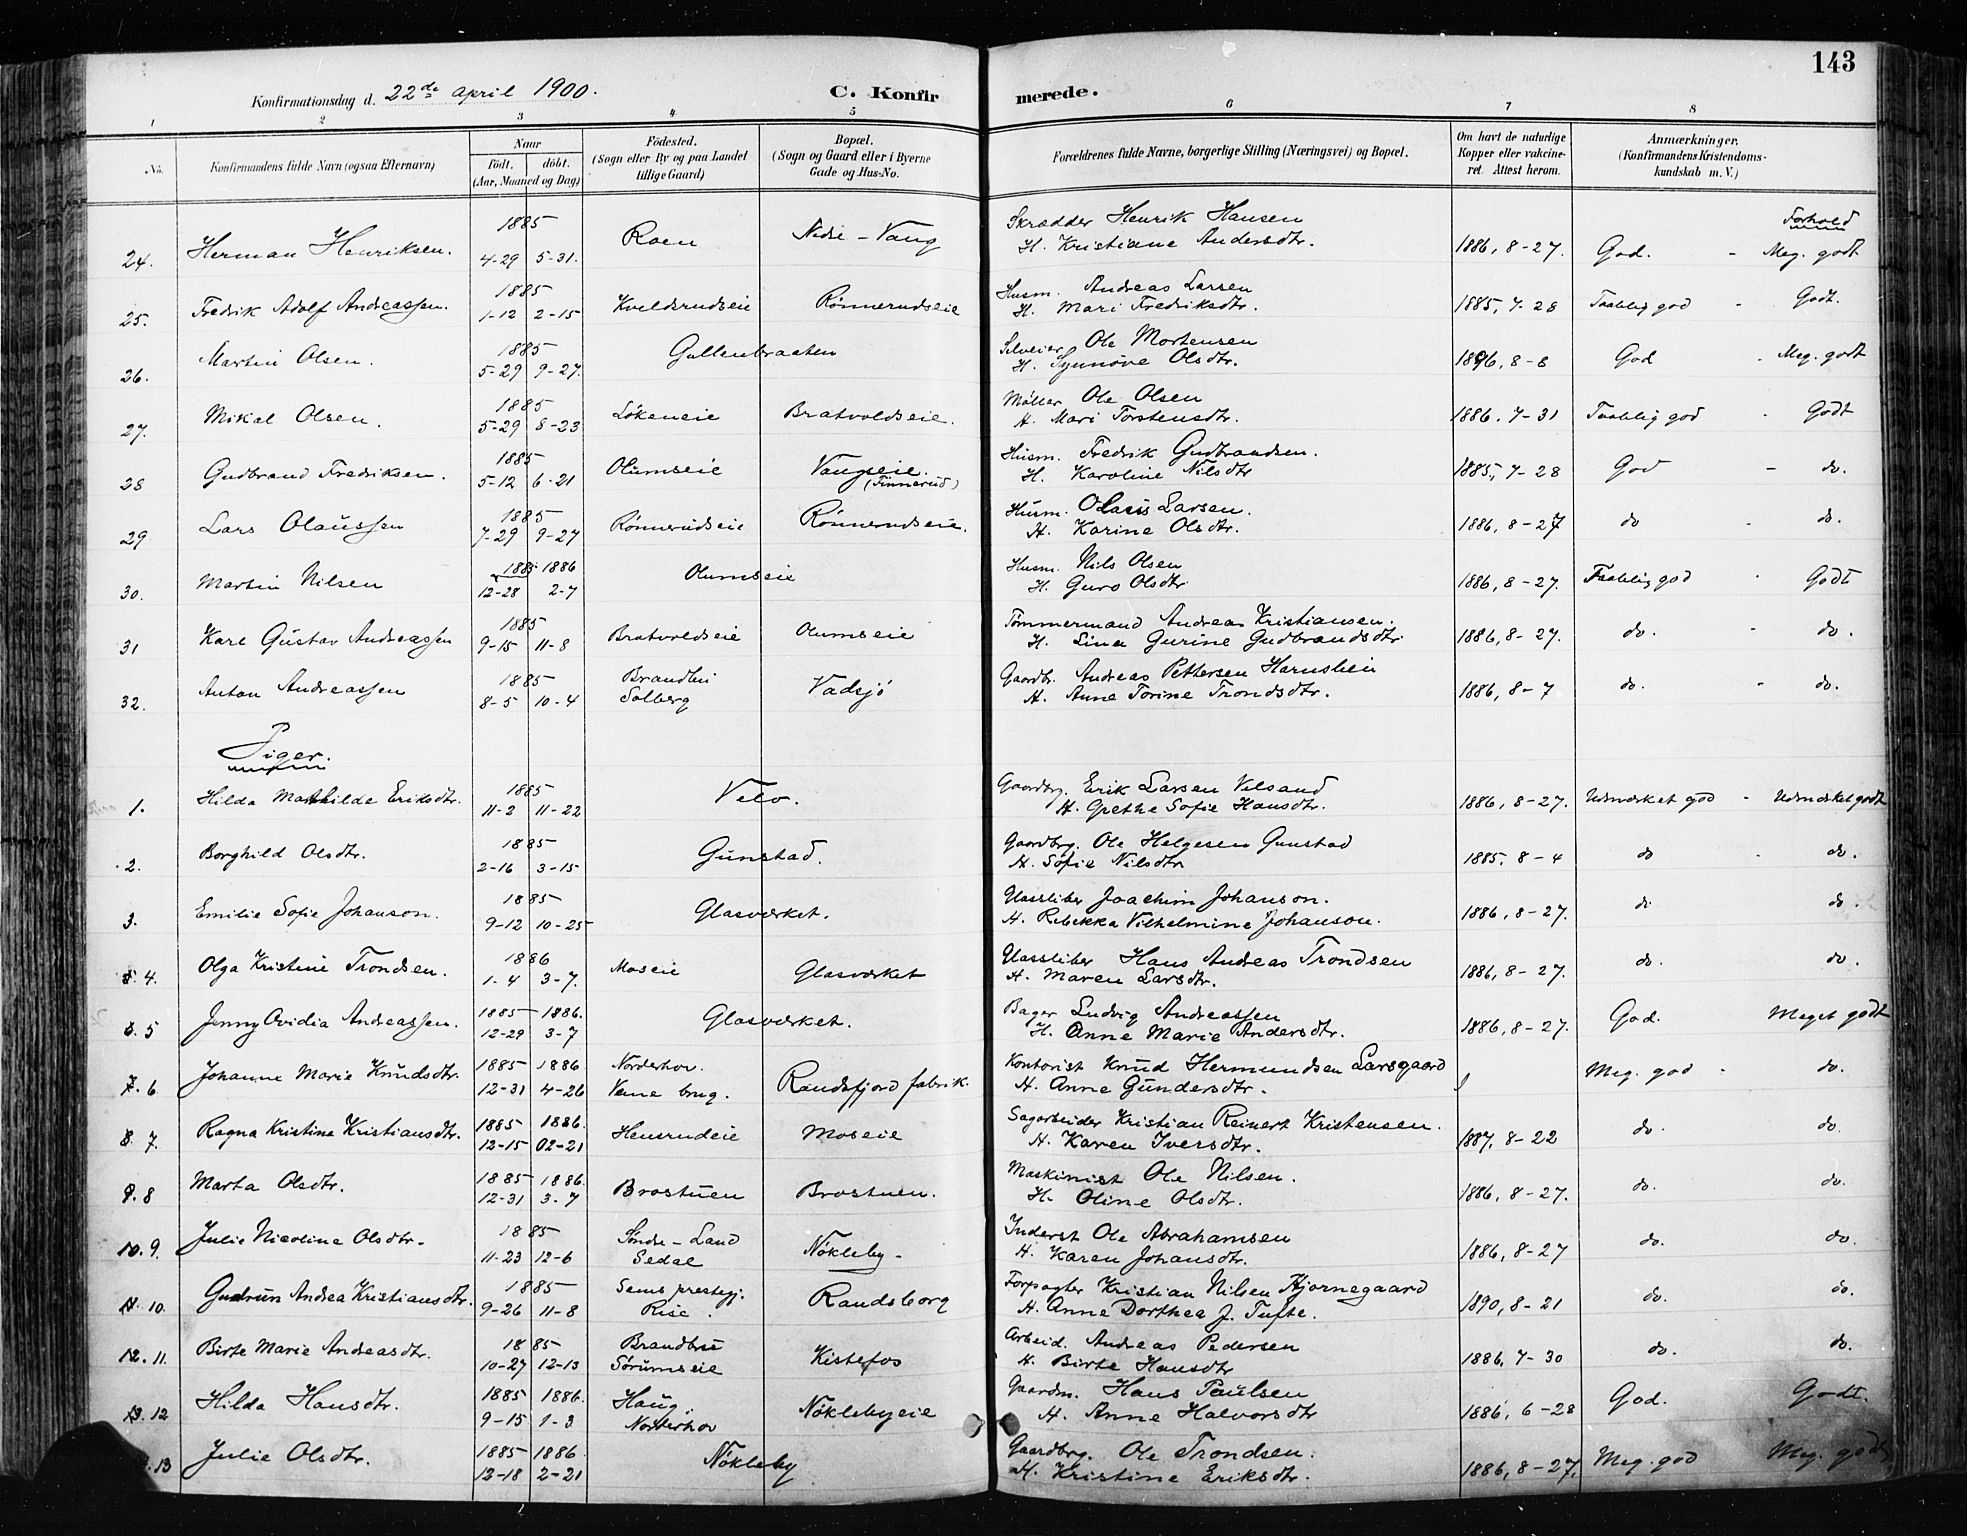 143
Konfirmationsdag d. 22de april 1900.
C. Konfirmerede.
1 2 3 4 5 6 7 8
No. Konfirmandens fulde Navn (ogsaa Efternavn) Naar Født. døbt. (Aar, Maaned og Dag) Födested. (Sogn eller By og paa Landet tillige Gaard) Bopæl. (Sogn og Gaard eller i Byerne Gade og Hus-No. Forældrenes fulde Navne, borgerlige Stilling (Næringsvei) og Bopæl. Om havt de naturlige Kopper eller vakcineret. Attest herom. Anmærkninger. (Konfirmandens Kristendomskundskab m. V.)
Forhold
24. Herman Henriksen. 1885 4-29 5-31. Roen Nedre-Vang Skrædder Henrik Hansen H. Kristiane Andersdtr. 1886, 8-27. God. - Meg. godt
25. Fredrik Adolf Andreassen. 1885 1-12 2-15 Kveldsrudseie Rönnerudseie Husm. Andreas Larsen H. Mari Fredriksdtr. 1885, 7-28 Taablig god - Godt.
26. Martin Olsen. 1885 5-29 9-27. Gullenbraaten Selveier Ole Mortensen H. Synnöve Olsdtr. 1896, 8-8 God - Meg. godt
27. Mikal Olsen. 1885 5-29 8-23 Lökeneie Bratvoldseie. Möller Ole Olsen H. Mari Torstensdtr. 1886. 7-31 Taablig god - Godt
28 Gudbrand Fredriksen. 1885 5-12 6-21 Olumseie Vangseie. (Finnerud) Husm. Fredrik Gudbrandsen. H. Karoline Nilsdtr 1885, 7-28 God - do.
29 Lars Olaussen 1885 7-29 9-27 Rönnerudseie Rönnerudseie. Husm. Olaus Larsen. H. Karine Olsdtr. 1886, 8-27 do - do.
30. Martin Nilsen 1885 1886 12-28 2-7 Olumseie Husm. Nils Olsen H. Guro Olsdtr 1886, 8-27. Taablig god - Godt
31 Karl Gustav Andreassen 1885 9-15 11-8 Bratvoldseie Olumseie Tömmermand Andreas Kristiansen. H. Lina Gurine Gudbrandsdtr. 1886, 8-27. do. - do.
32. Anton Andreassen 1885 8-5 10-4 Brandbu Solberg Vadsjö Gaardb. Andreas Pettersen H. Anne Torine Trondsdtr. 1886, 8-7 do. - do.
Piger.
1. Hilda Mathilde Eriksdtr. 1885 11-2 11-22 Velo. Gaardbrg. Erik Larsen Velsand H. Grethe Sofie Hansdtr. 1886, 8-27. Udmærket god - Udmærket godt
2. Borghild Olsdtr. 1885 2-16 3-15 Gunstad. Gaardbrg. Ole Helgesen Gunstad H. Sofie Nilsdtr 1885. 8-4 do - do.
3. Emilie Sofie Johanson. 1885 9-12 10-25 Glasværket. Glassliber Joachim Johanson. H. Rebekka Vilhelmine Johanson. 1886, 8-27. do do.
4. Olga Kristine Trondsen. 1886 1-4 3-7. Moseie Glasværket Glassliber Hans Andreas Trondsen H. Maren Larsdtr. 1886, 8-27. do. do.
5 Jenny Ovidia Andreassen. 1885 - 1886. 12-29 3-7 Glasværket. Bager Ludvig Andreassen H. Anne Marie Andersdtr. 1886, 8-27. God. Meget godt
6 Johanne Marie Knudsdtr. 1885 1886 12-31 4-26 Norderhov. Veme brug. Randsfjord fabrik. Kontorist Knud Hermundsen Larsgaard H. Anne Gundersdtr. Meg. god - do.
7. Ragna Kristine Kristiansdtr. 1885 1886. 12-15 02-21 Hensrudeie Moseie Sagarbeider Kristian Reinert Kristensen. H. Karen Iversdtr. 1887, 8-22 do. do.
8 Marta Olsdtr. 1885 1886. 12-31 3-7 Brostuen Brostuen. Maskinist Ole Nilsen. H. Oline Olsdtr. 1886, 8-27. do. do.
9. Julie Nicoline Olsdtr. 1885 11-23 12-6 Söndre-Land Sedal Nökleby Inderst Ole Abrahamsen H. Karen Johansdtr. 1886, 8-27 do. do.
10. Gudrun Andrea Kristiansdtr. 1885 9-26 11-8 Sems prestegj. Rise. Randsborg Forpagter Kristian Nilsen Hjörnegaard H. Anne Dorthea J. Tufte. 1890, 8-21 do. do.
11. Birte Marie Andreasdtr. 1885 10-27 12-13 Brandbu Sörumseie Kistefos Arbeid. Andreas Pedersen H. Birte Hansdtr 1886, 7-30 do. do.
12 Hilda Hansdtr. 1885 1886. 9-15 1-3 Haug. Norderhov Nöklebyeie Gaardm. Hans Paulsen H. Anne Halvorsdtr 1886, 6-28 God. Godt.
13 Julie Olsdtr. 1885 1886 12-18 2-21 Nökleby Gaardbrg. Ole Trondsen. H. Kristine Eriksdtr. 1886, 8-27. Meg. god Meg. godt